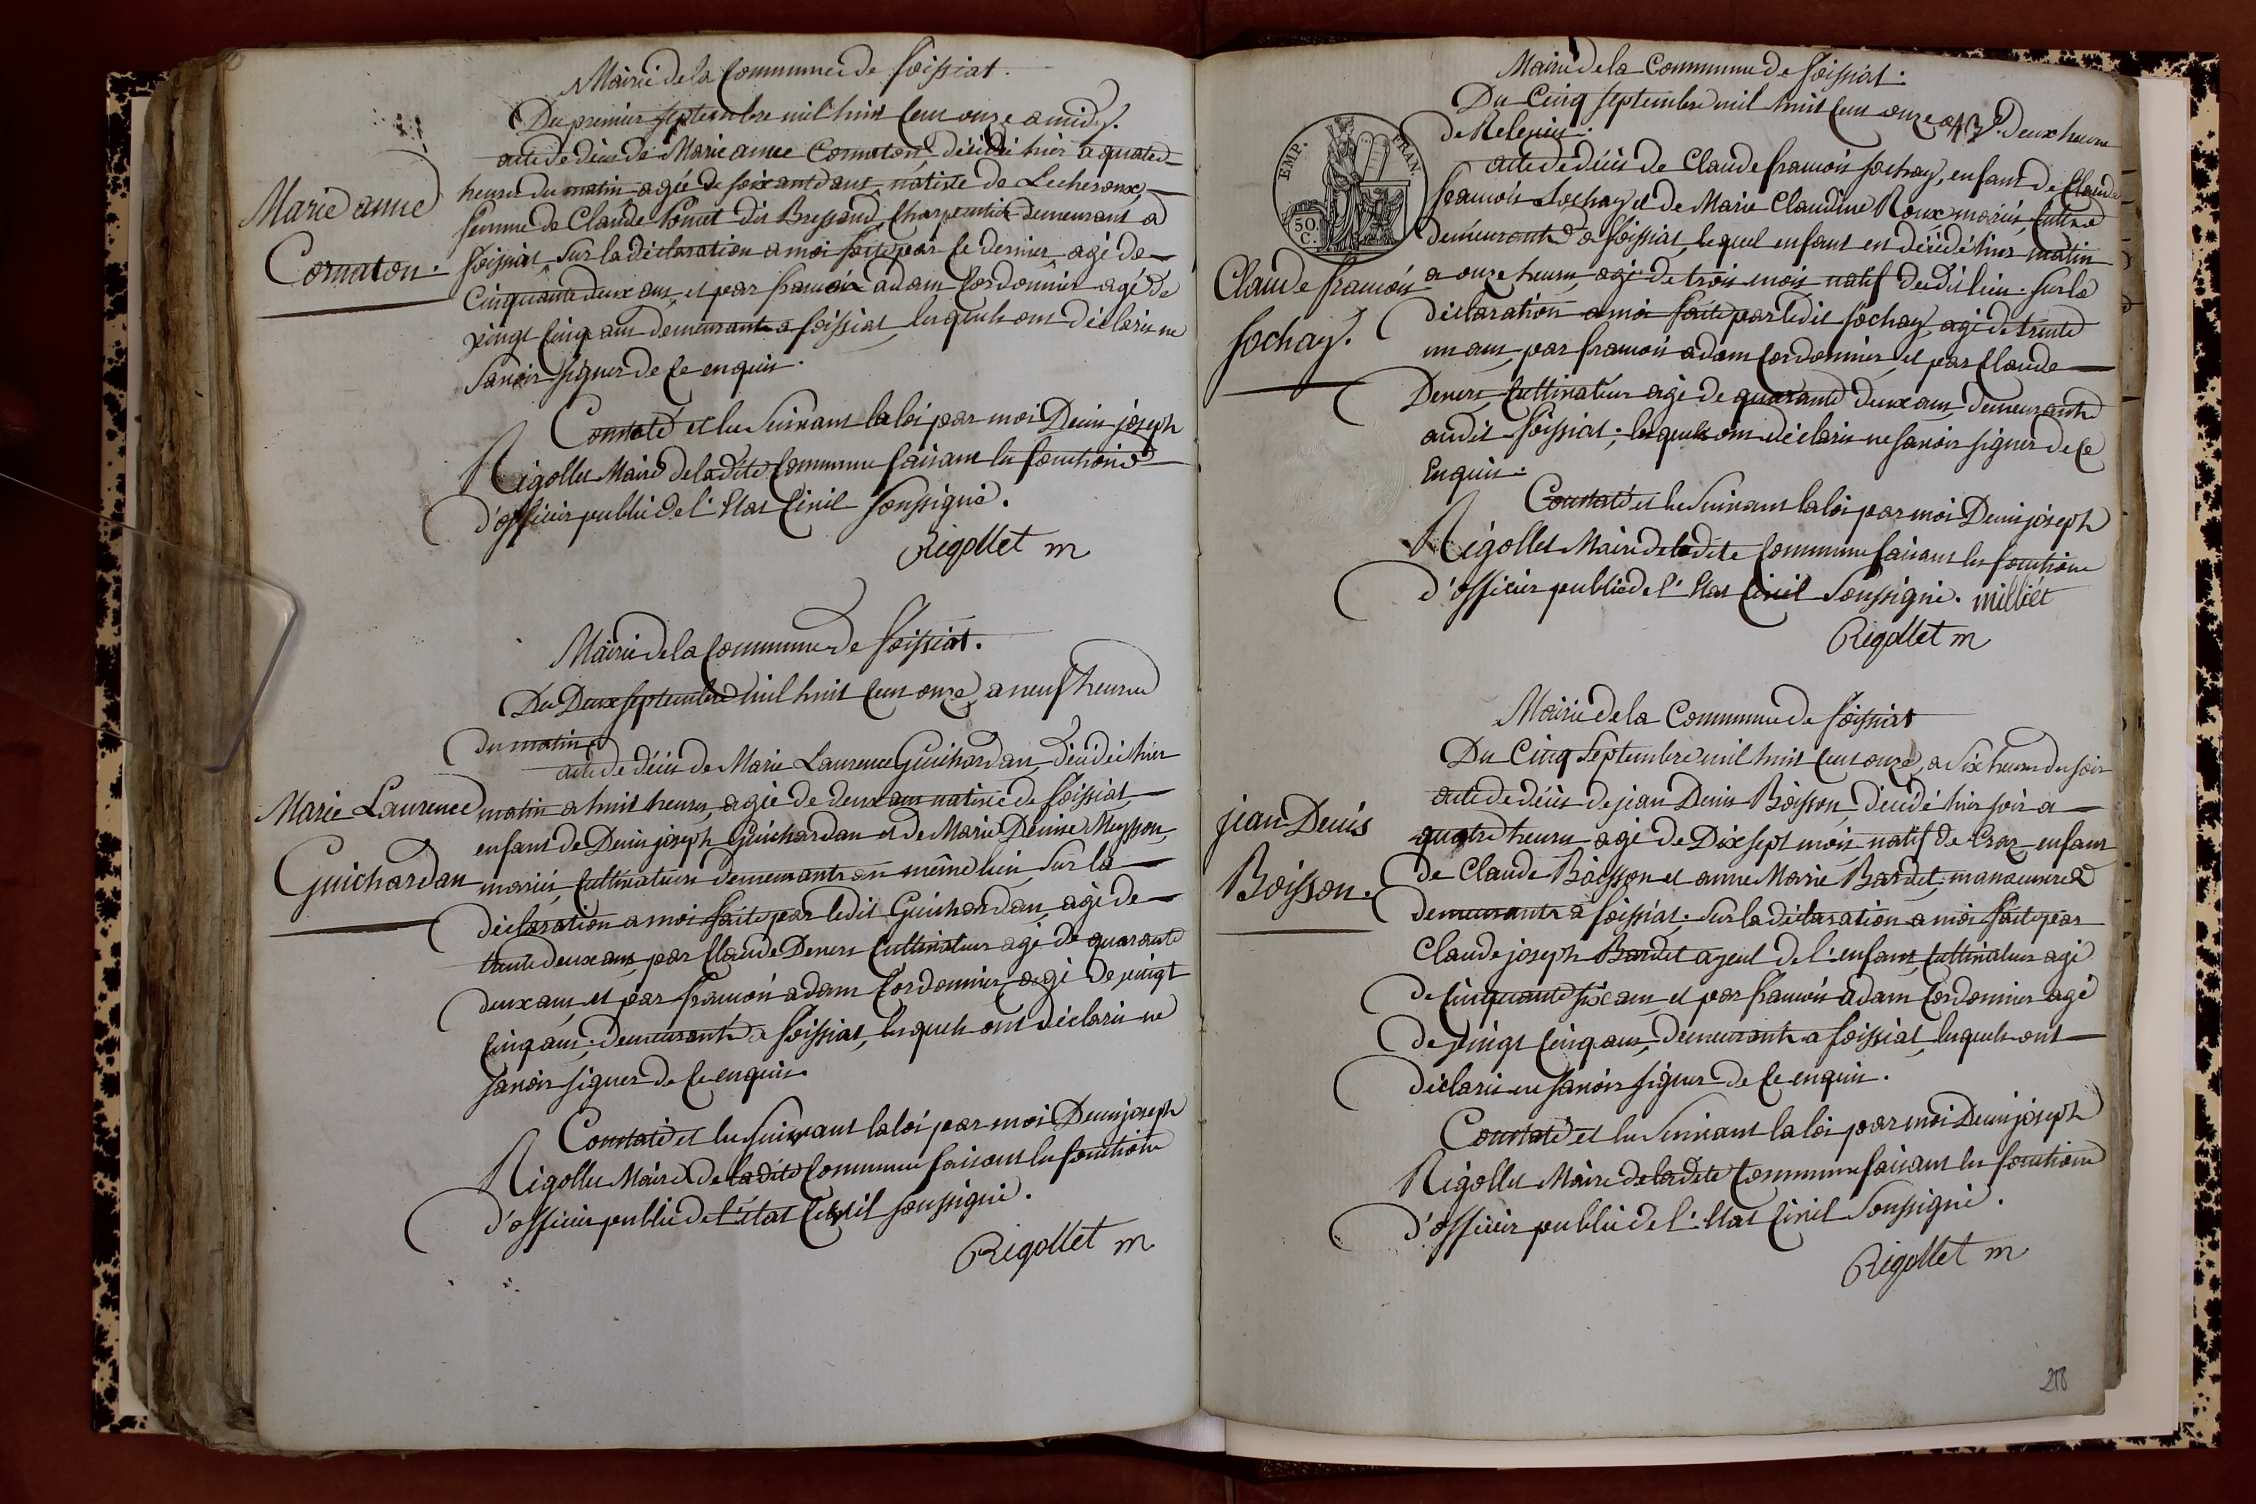 Mairie de la Commune de foissiat.
Du premier septembre mil huit Cent onze a midy.
acte de déces de Marie anne Cornaton, décédée hier a quatre
heures du matin agée de soixante ans, native de Lescheroux,
femme de Claude Ponet dit Bressand, Charpentier demeurant a
foissiat, sur la déclaration a moi faite par le dernier, agé de
Cinquante deux ans, et par francois adam Cordonnier agé de
vingt Cinq ans demeurants a foissiat, lesquels ont déclarés ne
savoir signer de Ce enquis.
Constaté et lu suivant la loi par moi Denis joseph
Rigollet Maire de la dite Commune faisant les fonctions
d'officier public de l'Etat Civil soussigné.
Rigollet m
Marie anne
Cornaton.
Mairie de la Commune de foissiat.
Du Deux septembre mil huit Cent onze, a neuf heures
du matin
acte de déces de Marie Laurence Guichardan, décédée hier
matin a huit heures, agée de deux ans native de foissiat,
enfant de Denis joseph Guichardan et de Marie Denise Meysson,
mariés, Cultivateurs demeurants au même lieu, sur la
déclaration a moi faite par ledit Guichardan, agé de
trente deux ans, par Claude Devers Cultivateur agé de quarante
deux ans, et par francois adam Cordonnier agé de vingt
Cinq ans, demeurants a foissiat, lesquels ont déclarés ne
savoir signer de Ce enquis.
Constaté et lu suivant la loi par moi Denis joseph
Rigollet Maire de la dite Commune faisant les fonctions
d'officier public de l'état Civil soussigné.
Rigollet m
Marie Laurence
Guichardan
Mairie de la Commune de foissiat.
Du Cinq septembre mil huit Cent onze a deux heures
de Relevée.
acte de déces de Claude francois sochay, enfant de Claude
francois sochay et de Marie Claudine Roux mariés, Cultiv.
demeurants a foissiat, lequel enfant est décédé hier matin
a onze heures, agé de trois mois natif dudit lieu. sur la
déclaration a moi faite par ledit sochay, agé de trente
un ans, par francois adam Cordonnier, et par Claude
Devers Cultivateur agé de quarante deux ans, demeurants
audit foissiat; lesquels ont déclarés ne savoir signer de Ce
Enquis.
Constaté et lu suivant la loi par moi Denis joseph
Rigollet Maire de la dite Commune faisant les fonctions
d'officier public de l'Etat Civil soussigné. milliet
Rigollet m
EMP. FRAN.
50.
C.
Claude francois
sochay.
Mairie de la Commune de foissiat
Du Cinq septembre mil huit Cent onze, a six heures du soir
acte de déces de jean Denis Boisson, décédé hier soir a
quatre heures, agé de Dix sept mois, natif de Cras, enfant
de Claude Boisson et anne Marie Bardet, manoeuvres
demeurants a foissiat; sur la déclaration a moi faite par
Claude joseph Bardet ayeul de l'enfant, Cultivateur agé
de Cinquante six ans, et par francois adam Cordonnier agé
de vingt Cinq ans, demeurants a foissiat, lesquels ont
déclarés ne savoir signer de Ce enquis.
Constaté et lu suivant la loi par moi Denis joseph
Rigollet Maire de la dite Commune faisant les fonctions
d'officier public de l'Etat Civil soussigné.
Rigollet m
jean Denis
Boisson.
218